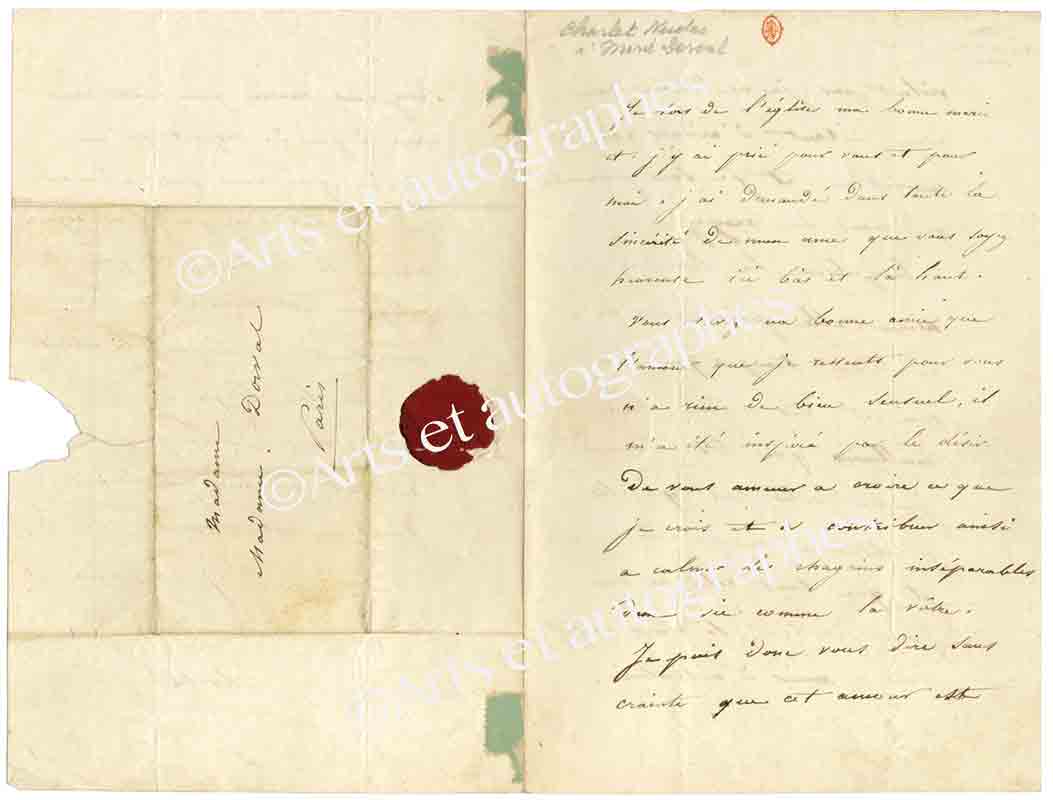 Madame
Madame. Dorval
Paris
à Marie Dorval
Je sors de l'église ma bonne marie
et j'y ai prié pour vous et pour
moi, j'ai demandé dans toute la
sincérité de mon ame que vous soyez
heureuse ici bas et là haut.
Vous bonne amie que
l'amour que je ressents pour vous
n'a rien de bien sensuel, il
m'a été inspiré par le désir
De vous amener a croire ce que
je crois et a contribuer ainsi
a calmer des chagrins inséparables
D'une vie comme la vôtre.
Je puis donc vous dire sans
crainte que cet amour est
©Arts et autographes
©Arts et autographes
©Arts et autographes